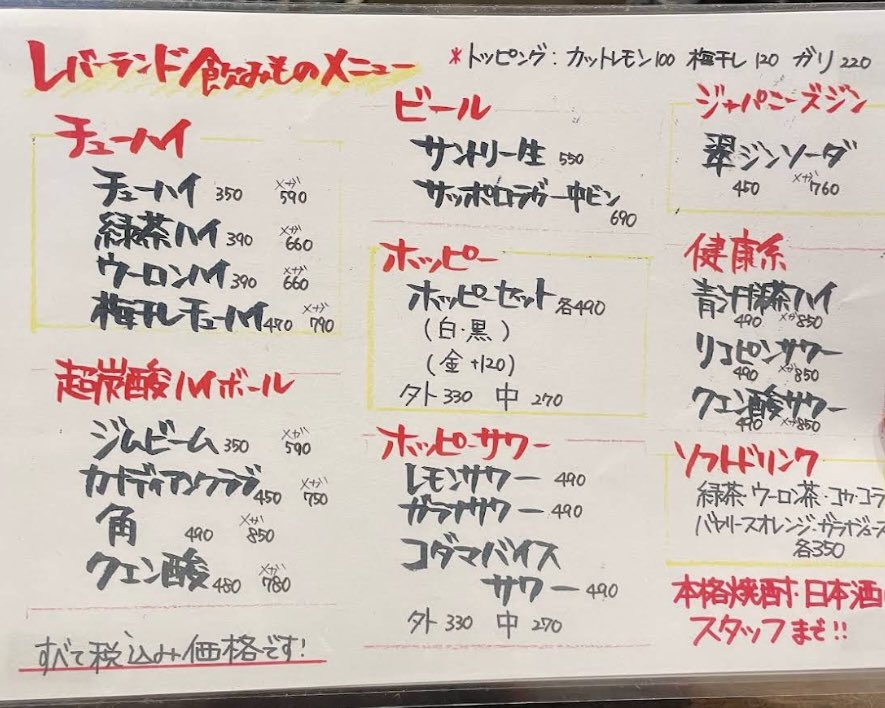 レバーランド飲みものメニュー
*トッピング:カットレモン100 梅干し120 ガリ220
チューハイ
チューハイ 350 メガ590
緑茶ハイ 390 メガ660
ウーロンハイ 390 メガ660
梅干しチューハイ 470 メガ790
超炭酸ハイボール
ジムビーム 350 メガ590
カナディアンクラブ 450 メガ750
角 490 メガ850
クエン酸 480 メガ780
すべて税込み価格です!
ビール
サントリー生 550
サッポロラガー中ビン
690
ホッピー
ホッピーセット 各490
(白・黒)
(金+120)
外330 中270
ホッピーサワー
レモンサワー 490
ガラナサワー 490
コダマバイス
サワー 490
外330 中270
ジャパニーズジン
翠ジンソーダ
450 メガ760
健康系
青汁緑茶ハイ
490 メガ850
リコピンサワー
490 メガ850
クエン酸サワー
490 メガ850
ソフトドリンク
緑茶・ウーロン茶・コカ・コラ
バヤリースオレンジ・ガラナジュース
各350
本格焼酎・日本酒
スタッフまで!!